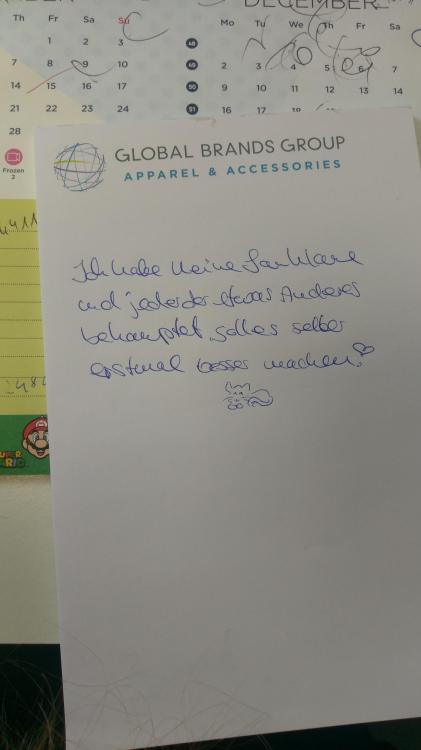 DECEMBER
Th Fr Sa Su
Mo Tu We Th Fr Sa
1 2 3
48
7 8 9 10
49 2 3 4 5 6 7
14 15 16 17
50 9 10 11 12 13 14
21 22 23 24
51 16 17 18
28
Frozen
2
GLOBAL BRANDS GROUP
APPAREL & ACCESSORIES
Ich habe keine Sauklaue
und jeder der etwas Anderes
behauptet, solles selber
erstmal besser machen!
SUPER
MARIO